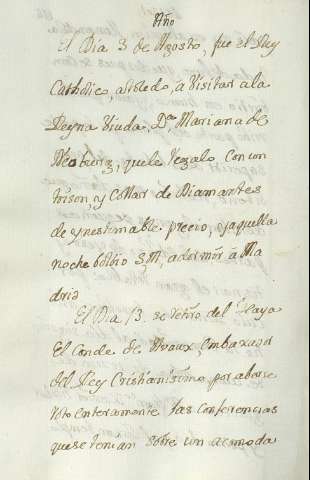 Año
El Dia 3 de Agosto, fue el Rey
Catholico, a toledo, a Visitar a la
Reyna Viuda, Dª. Mariana de
Neoburg, que le Regalo, Con un
toison, y Collar de Diamantes
de ynestimable precio, y aquella
noche bolbio S.M, a dormir â Ma
drid
El Dia 13. se retiro del Haya
El Conde de Avaux, embaxador
del Rey Cristianissimo, por aberse
Roto enteramente las Conferencias
que se tenian sobre un acomoda